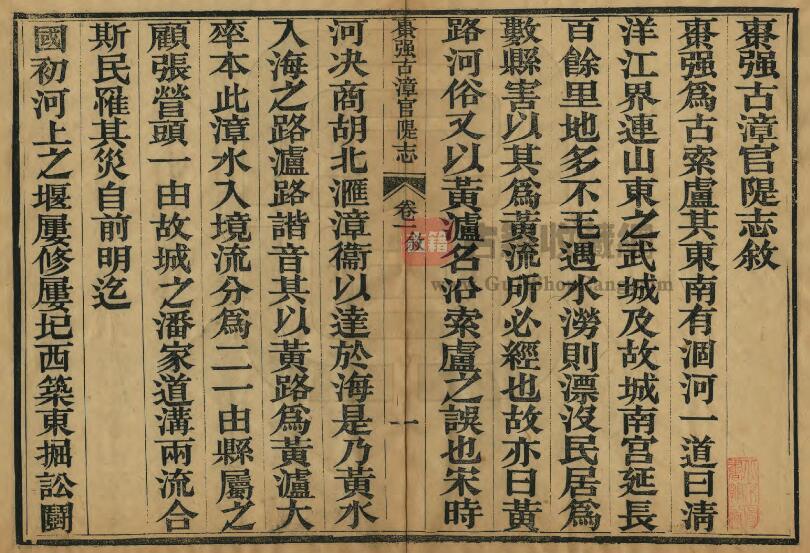 棗强古漳官隄志敘
棗强爲古索盧其東南有涸河一道曰淸
洋江界連山東之武城及故城南宫延長
百餘里地多不毛遇水澇則漂没民居爲
數縣害以其爲黃流所必經也故亦曰黃
路河俗又以黃瀘名沿索盧之誤也宋時
棗强古漳官隄志 卷一 敘 一
河决商胡北滙漳衞以達於海是乃黃水
入海之路瀘路諧音其以黃路爲黃瀘大
率本此漳水入境流分爲二一由縣屬之
顧張營頭一由故城之潘家道溝兩流合
斯民罹其災自前明迄
國初河上之堰屢修屢圮西築東掘訟鬭